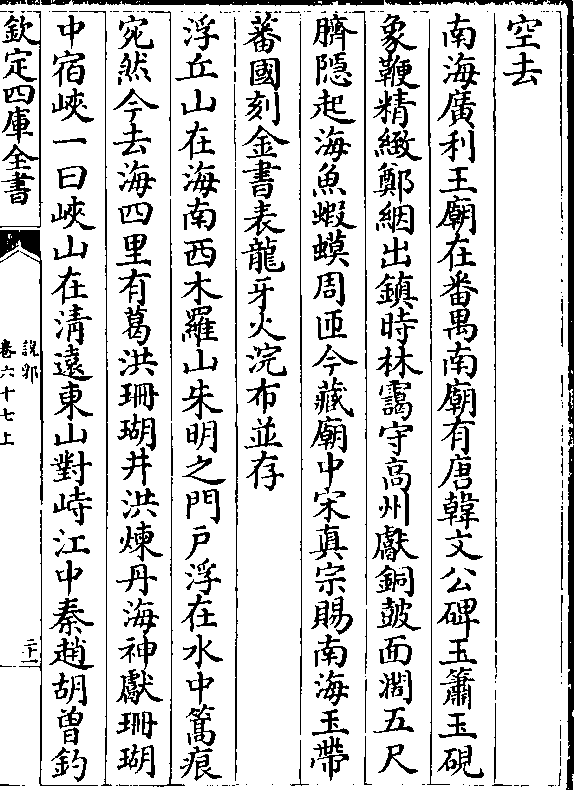 空去
南海廣利王廟在番禺南廟有唐韓文公碑玉簫玉硯
象鞭精緻鄭絪出鎮時林靄守高州獻銅皷面濶五尺
臍隠起海魚蝦蟆周匝今藏廟中宋真宗賜南海玉帶
蕃國刻金書表龍牙火浣布並存
浮丘山在海南西木羅山朱明之門戸浮在水中篙痕
宛然今去海四里有葛洪珊瑚井洪煉丹海神獻珊瑚
中宿峽一曰峽山在清遠東山對峙江中秦趙胡曽釣
欽定四庫全書
說郛
卷六十七上
二十一